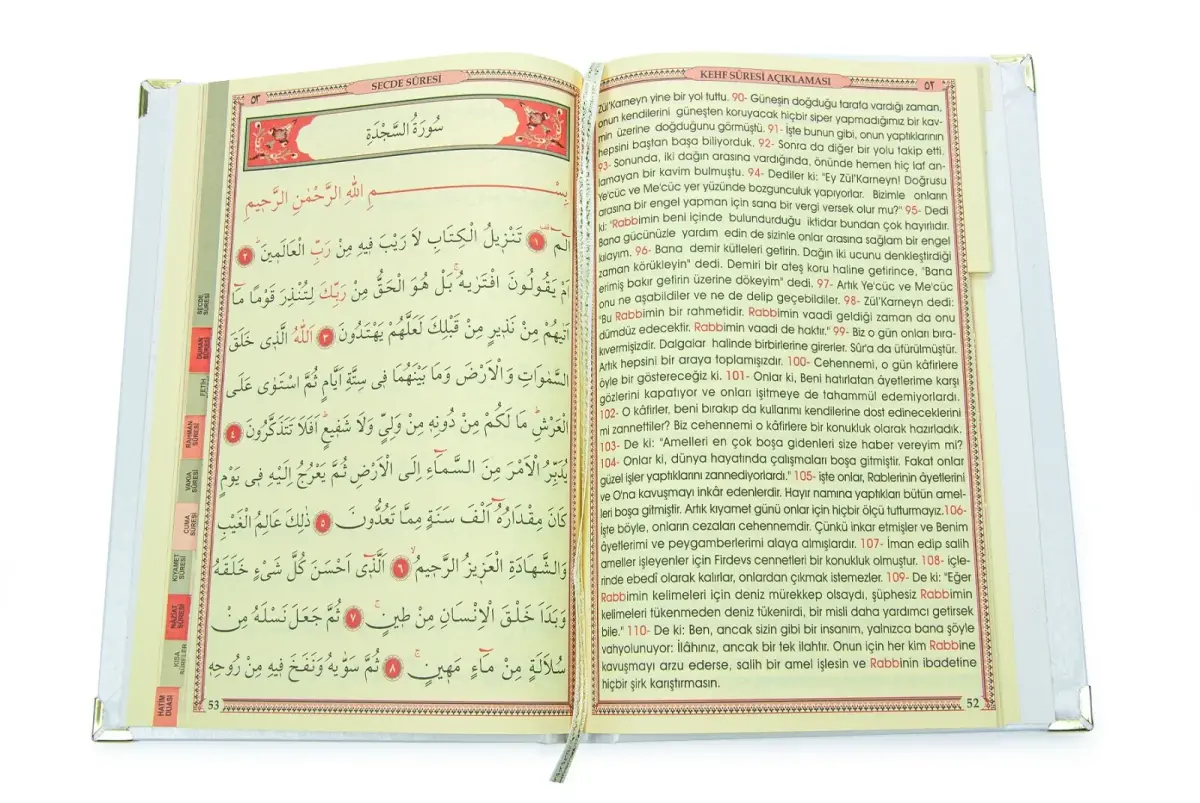 KEHF SÛRESİ AÇIKLAMASI
٥٢
Zül'Karneyn yine bir yol tuttu. 90- Güneşin doğduğu tarafa vardığı zaman,
onun kendilerini güneşten koruyacak hiçbir siper yapmadığımız bir kav-
min üzerine doğduğunu görmüştü. 91- İşte bunun gibi, onun yaptıklarının
hepsini baştan başa biliyorduk. 92- Sonra da diğer bir yolu takip etti.
93- Sonunda, iki dağın arasına vardığında, önünde hemen hiç laf an-
lamayan bir kavim bulmuştu. 94- Dediler ki: "Ey Zül'Karneyn! Doğrusu
Ye'cüc ve Me'cüc yer yüzünde bozgunculuk yapıyorlar. Bizimle onların
arasına bir engel yapman için sana bir vergi versek olur mu?" 95- Dedi
ki: "Rabbimin beni içinde bulundurduğu iktidar bundan çok hayırlıdır.
Bana gücünüzle yardım edin de sizinle onlar arasına sağlam bir engel
kılayım. 96- Bana demir kütleleri getirin. Dağın iki ucunu denkleştirdiği
zaman körükleyin" dedi. Demiri bir ateş koru haline getirince, "Bana
erimiş bakır getirin üzerine dökeyim" dedi. 97- Artık Ye'cüc ve Me'cüc
onu ne aşabildiler ve ne de delip geçebildiler. 98- Zül'Karneyn dedi:
"Bu Rabbimin bir rahmetidir. Rabbimin vaadi geldiği zaman da onu
dümdüz edecektir. Rabbimin vaadi de haktır." 99- Biz o gün onları bıra-
kıvermişizdir. Dalgalar halinde birbirlerine girerler. Sûr'a da üfürülmüştür.
Artık hepsini bir araya toplamışızdır. 100- Cehennemi, o gün kâfirlere
öyle bir göstereceğiz ki. 101- Onlar ki, Beni hatırlatan âyetlerime karşı
gözlerini kapatıyor ve onları işitmeye de tahammül edemiyorlardı.
102- O kâfirler, beni bırakıp da kullarımı kendilerine dost edineceklerini
mi zannettiler? Biz cehennemi o kâfirlere bir konukluk olarak hazırladık.
103- De ki: "Amelleri en çok boşa gidenleri size haber vereyim mi?
104- Onlar ki, dünya hayatında çalışmaları boşa gitmiştir. Fakat onlar
güzel işler yaptıklarını zannediyorlardı." 105- işte onlar, Rablerinin âyetlerini
ve O'na kavuşmayı inkâr edenlerdir. Hayır namına yaptıkları bütün amel-
leri boşa gitmiştir. Artık kıyamet günü onlar için hiçbir ölçü tutturmayız.106-
İşte böyle, onların cezaları cehennemdir. Çünkü inkar etmişler ve Benim
âyetlerimi ve peygamberlerimi alaya almışlardır. 107- İman edip salih
ameller işleyenler için Firdevs cennetleri bir konukluk olmuştur. 108- içle-
rinde ebedî olarak kalırlar, onlardan çıkmak istemezler. 109- De ki: "Eğer
Rabbimin kelimeleri için deniz mürekkep olsaydı, şüphesiz Rabbimin
kelimeleri tükenmeden deniz tükenirdi, bir misli daha yardımcı getirsek
bile." 110- De ki: Ben, ancak sizin gibi bir insanım, yalnızca bana şöyle
vahyolunuyor: İlâhınız, ancak bir tek ilahtır. Onun için her kim Rabbine
kavuşmayı arzu ederse, salih bir amel işlesin ve Rabbinin ibadetine
hiçbir şirk karıştırmasın.
52
٥٣
SECDE SÛRESİ
سُورَةُ السَّجْدَةِ
بِسْمِ اللهِ الرَّحْمٰنِ الرَّحِيمِ
الٓمٓ ١ تَنْزِيلُ الْكِتَابِ لَا رَيْبَ فِيهِ مِنْ رَبِّ الْعَالَمِينَ ٢
اَمْ يَقُولُونَ افْتَرٰيهُ بَلْ هُوَ الْحَقُّ مِنْ رَبِّكَ لِتُنْذِرَ قَوْمًا مَٓا
اَتٰيهُمْ مِنْ نَذِيرٍ مِنْ قَبْلِكَ لَعَلَّهُمْ يَهْتَدُونَ ٣ اَللهُ الَّذِي خَلَقَ
السَّمٰوَاتِ وَالْاَرْضَ وَمَا بَيْنَهُمَا فِي سِتَّةِ اَيَّامٍ ثُمَّ اسْتَوٰى عَلَى
الْعَرْشِ مَا لَكُمْ مِنْ دُونِهِ مِنْ وَلِيٍّ وَلَا شَفِيعٍ اَفَلَا تَتَذَكَّرُونَ ٤
يُدَبِّرُ الْاَمْرَ مِنَ السَّمَٓاءِ اِلَى الْاَرْضِ ثُمَّ يَعْرُجُ اِلَيْهِ فِي يَوْمٍ
كَانَ مِقْدَارُهُٓ اَلْفَ سَنَةٍ مِمَّا تَعُدُّونَ ٥ ذٰلِكَ عَالِمُ الْغَيْبِ
وَالشَّهَادَةِ الْعَزِيزُ الرَّحِيمُ ٦ اَلَّذِٓي اَحْسَنَ كُلَّ شَيْءٍ خَلَقَهُ
وَبَدَاَ خَلْقَ الْاِنْسَانِ مِنْ طِينٍ ٧ ثُمَّ جَعَلَ نَسْلَهُ مِنْ
سُلَالَةٍ مِنْ مَٓاءٍ مَهِينٍ ٨ ثُمَّ سَوّٰيهُ وَنَفَخَ فِيهِ مِنْ رُوحِهِ
53
SECDE
SÛRESİ
DUHAN
SÛRESİ
FETİH
RAHMAN
SÛRESİ
VAKIA
SÛRESİ
CUMA
SÛRESİ
KIYAMET
SÛRESİ
NÂZİAT
SÛRESİ
KISA
SÛRELER
HATİM
DUASI